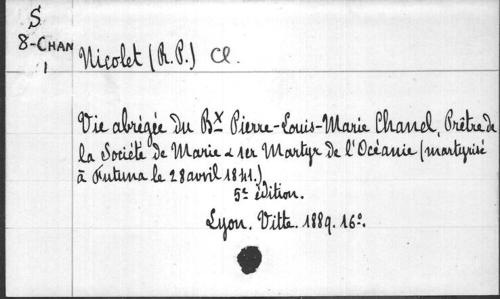 S
8-CHAN
1
Nicolet (R.P.) Cl.
Vie abrégée du Bx Pierre-Louis-Marie Chanel, Prêtre de
la Société de Marie & 1er Martyr de l'Océanie (martyrisé
à Futuna le 28 avril 1841.)
5e édition.
Lyon. Vitte. 1889. 16o.